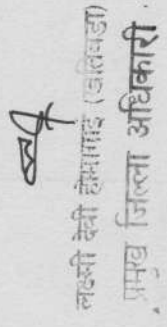 लक्ष्मी देवी हुमागाई (डोटिवडा)
प्रमुख जिल्ला अधिकारी